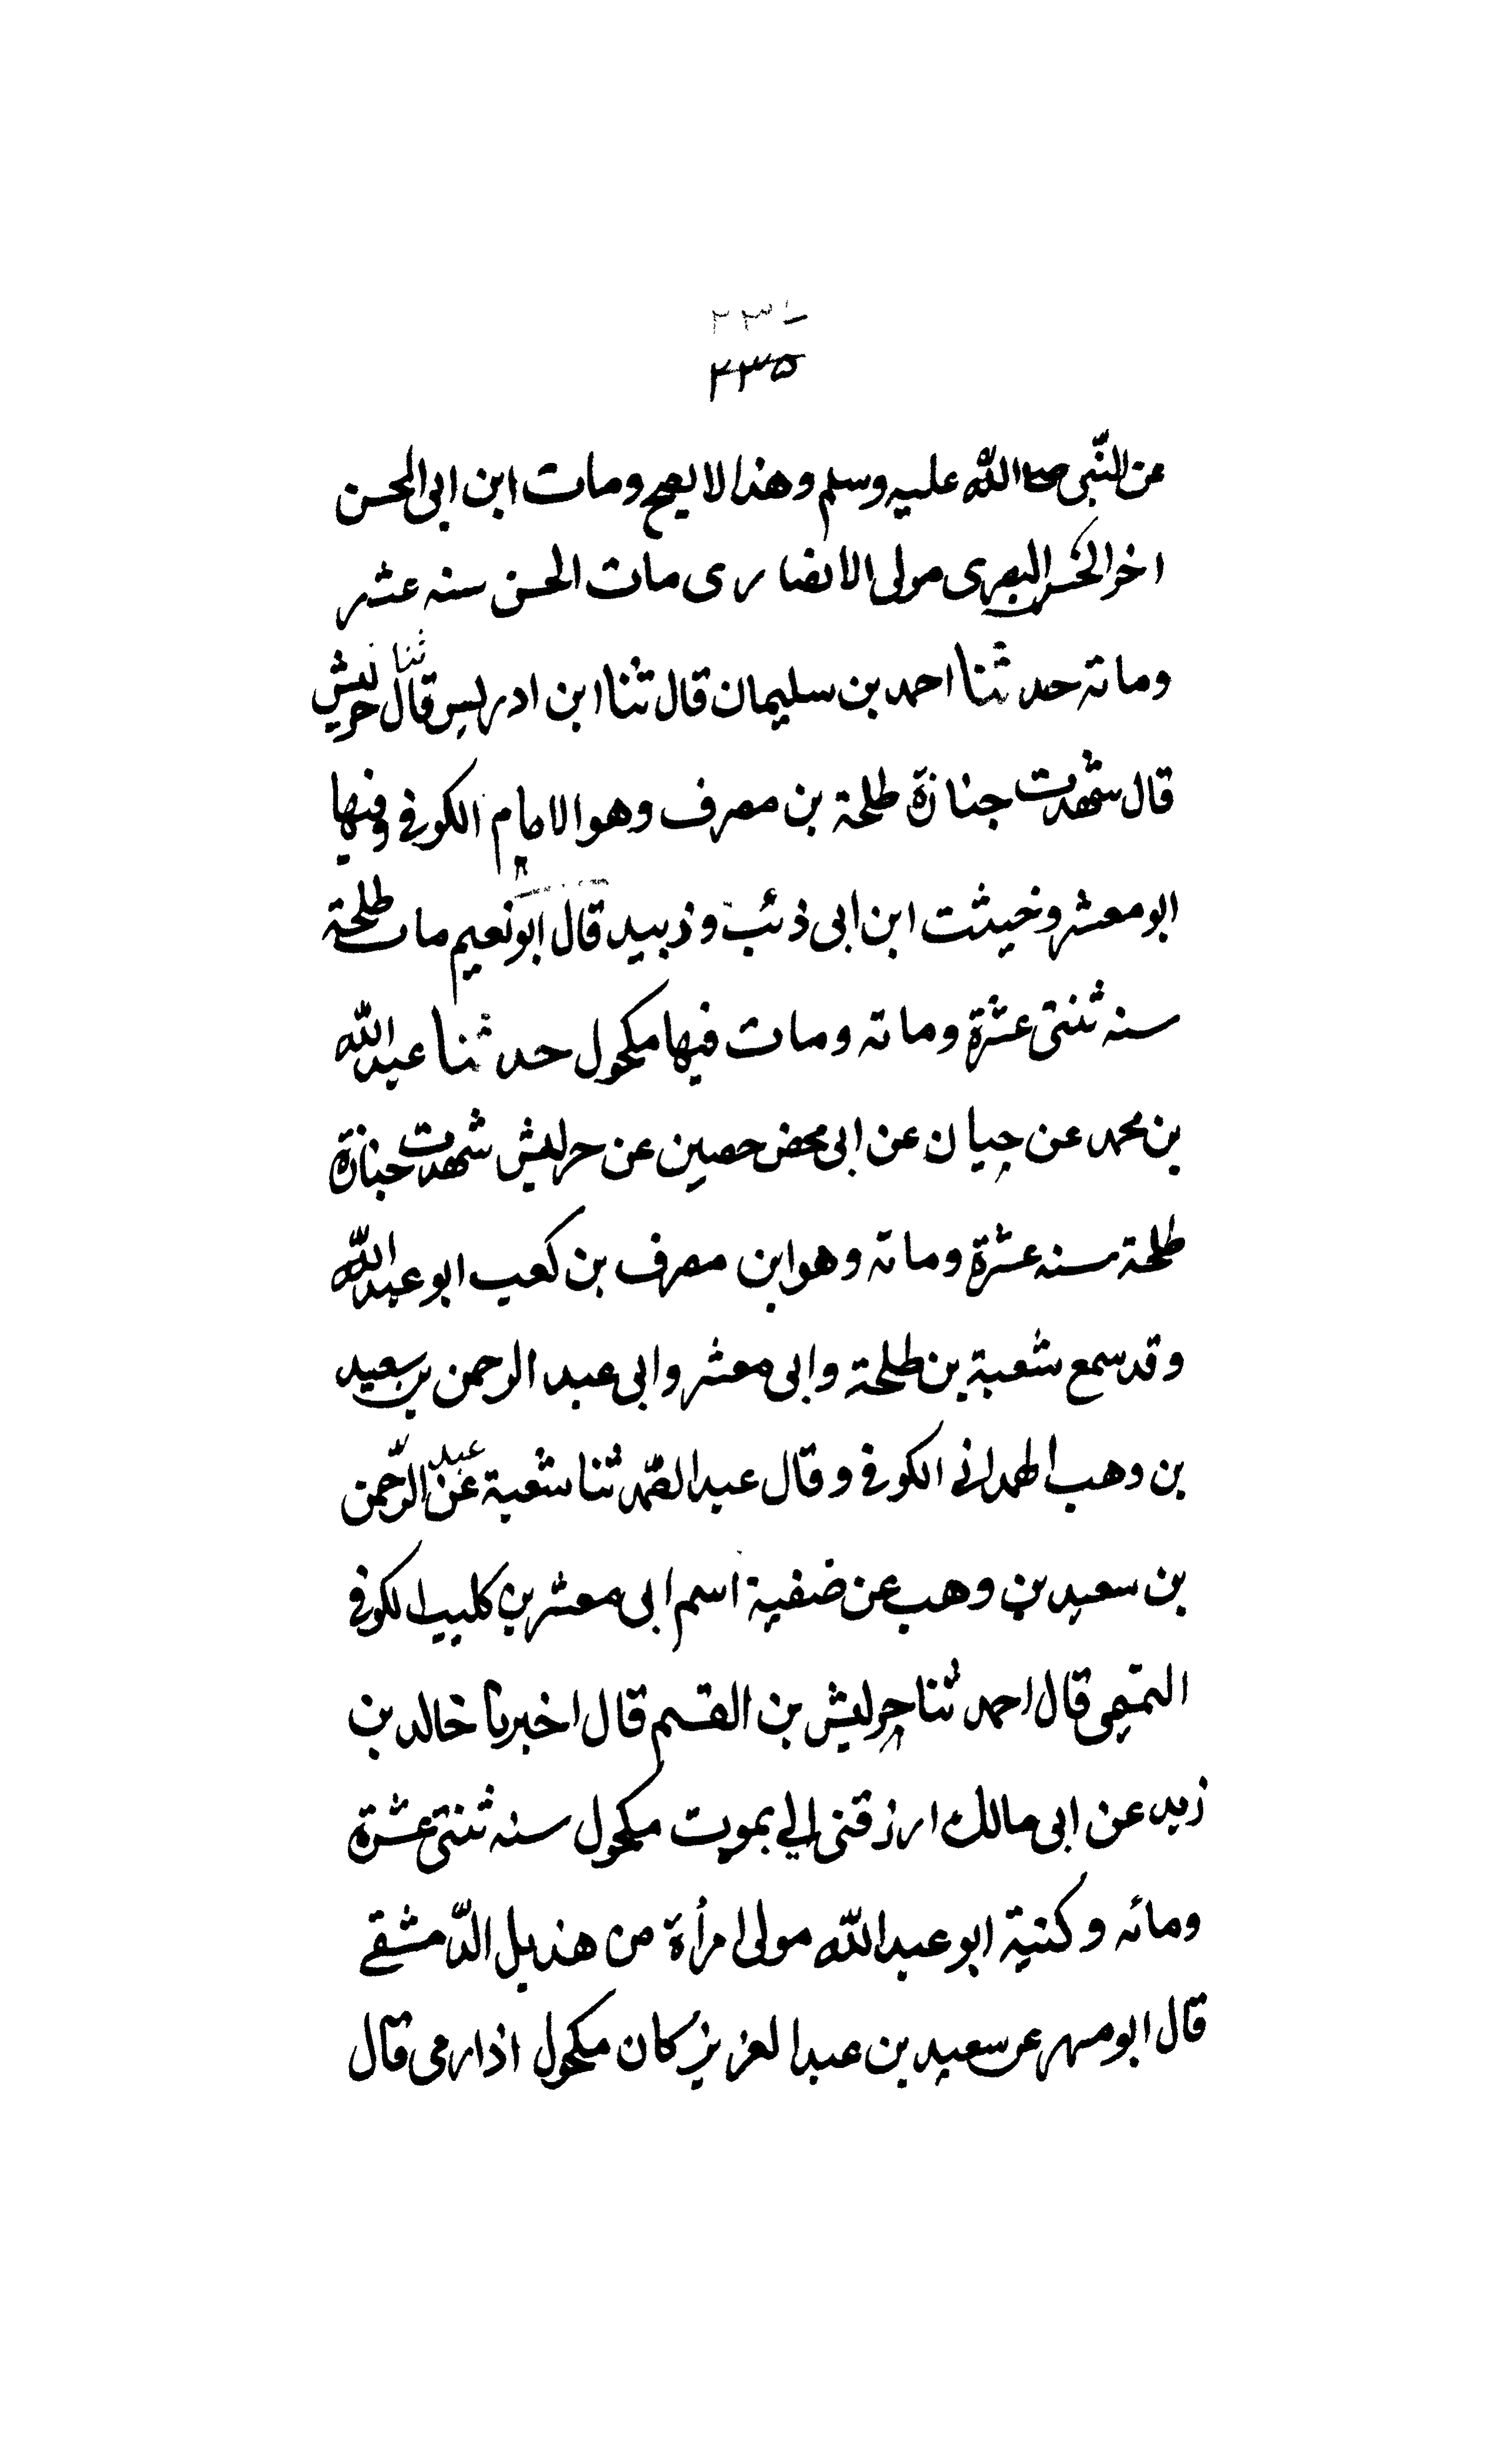 ٢٣٥
عن النّبى صلى اللّٰه عليه وسلم وهذا لا يصح ومات ابن ابى الحسن
اخو الحسن البصرى مولى الانصارى مات الحسن سنه عشر
وماته حدثنا احمد بن سليمان قال ثنا ابن ادريس قال ثنا حريش
قال شهدت جنازة طلحة بن مصرف وهو الامام الكوفى وفيها
ابو معشر وخيثت ابن ابى ذئب وزبيد قال ابو نعيم مات طلحة
سنه ثنتى عشرة وماته ومات فيها مكحول حدثنا عبد اللّٰه
بن محمد عن حيان عن ابى محض حصين عن حريش شهدت جنازة
طلحة سنه عشرة وماته وهو ابن مصرف بن كعب ابو عبد اللّٰه
وقد سمع شعبة بن طلحة وابى معشر وابى عبد الرحمن بن سعيد
بن وهب الهمدانى الكوفى وقال عبد الصّمد ثنا شعبة عن عبد الرّحمن
بن سعيد بن وهب عن ضفية اسم ابى معشر بن كليب الكوفى
التميمى قال احمد ثنا حريش بن القسم قال اخبرنا خالد بن
زيد عن ابى مالك ارزقنى الى بموت مكحول سنه ثنتى عشرة
ومائه وكنية ابو عبد اللّٰه مولى امرأة من هذيل الدّمشقے
قال ابو مسهر عن سعيد بن عبد العزيز كان مكحول اذا رمى قال